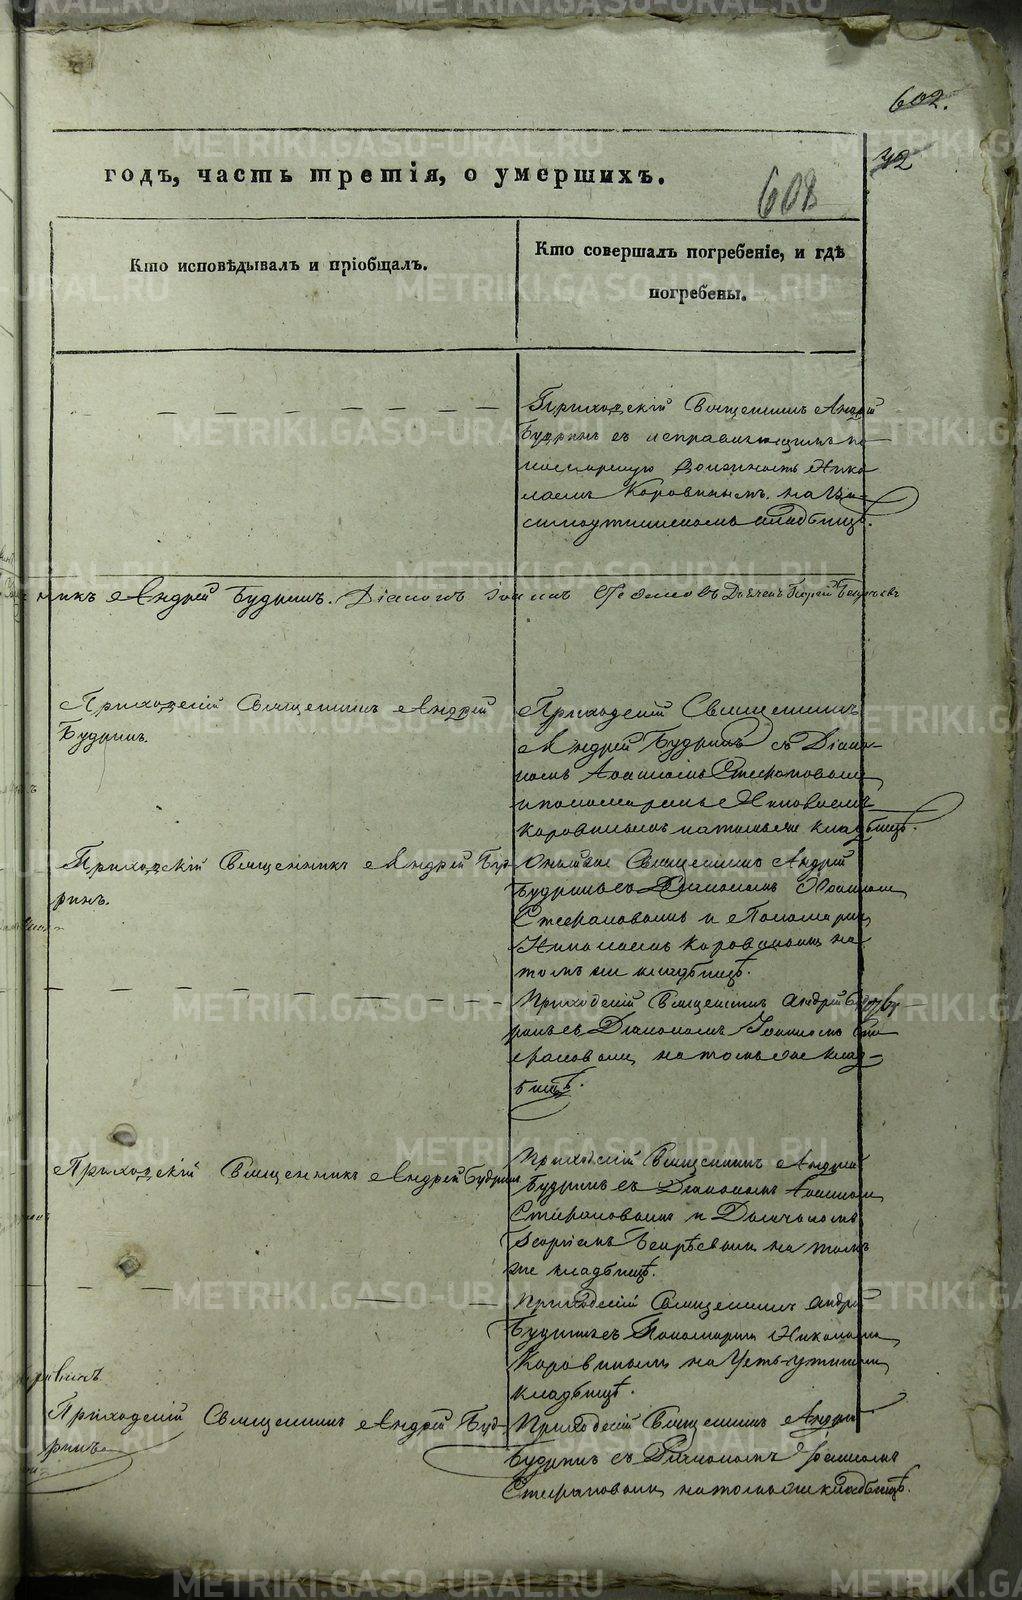 602.
72
годъ, часть третія, о умершихъ.
608
Кто исповѣдывалъ и пріобщалъ.
Кто совершалъ погребеніе, и гдѣ
погребены.
Приходскій Священникъ Андрей
Будринъ съ исправляющимъ по
номарскую должность Нико
лаемъ Коровинымъ на
кладбищѣ.
никъ Андрей Будринъ. Діаконъ Іоаннъ Дьячекъ Георгій
Приходскій Священникъ Андрей
Будринъ.
Приходскій Священникъ
Андрей Будринъ съ Діако-
номъ Іоанномъ Стефановымъ
и пономаремъ Николаемъ
Коровинымъ на томъ же кладбищѣ.
Приходскій Священникъ Андрей Буд-
ринъ.
Священникъ Андрей
Будринъ съ Діакономъ Іоанномъ
Стефановымъ и Пономаремъ
Николаемъ Коровинымъ на
томъ же кладбищѣ.
Приходскій Священникъ Андрей Буд
ринъ съ Діакономъ Іоанномъ Сте
фановымъ на томъ же клад-
бищѣ.
Приходскій Священникъ Андрей Будринъ
Приходскій Священникъ Андрей
Будринъ съ Діакономъ Іоанномъ
Стефановымъ и Дьячкомъ
Георгіемъ на томъ
же кладбищѣ.
Приходскій Священникъ Андрей
Будринъ съ Пономаремъ Николаемъ
Коровинымъ на Усть-Уткинскомъ
кладбищѣ.
Приходскій Священникъ Андрей Буд-
ринъ
Приходскій Священникъ Андрей
Будринъ съ Діакономъ Іоанномъ
Стефановымъ на томъ же кладбищѣ.
METRIKI.GASO-URAL.RU